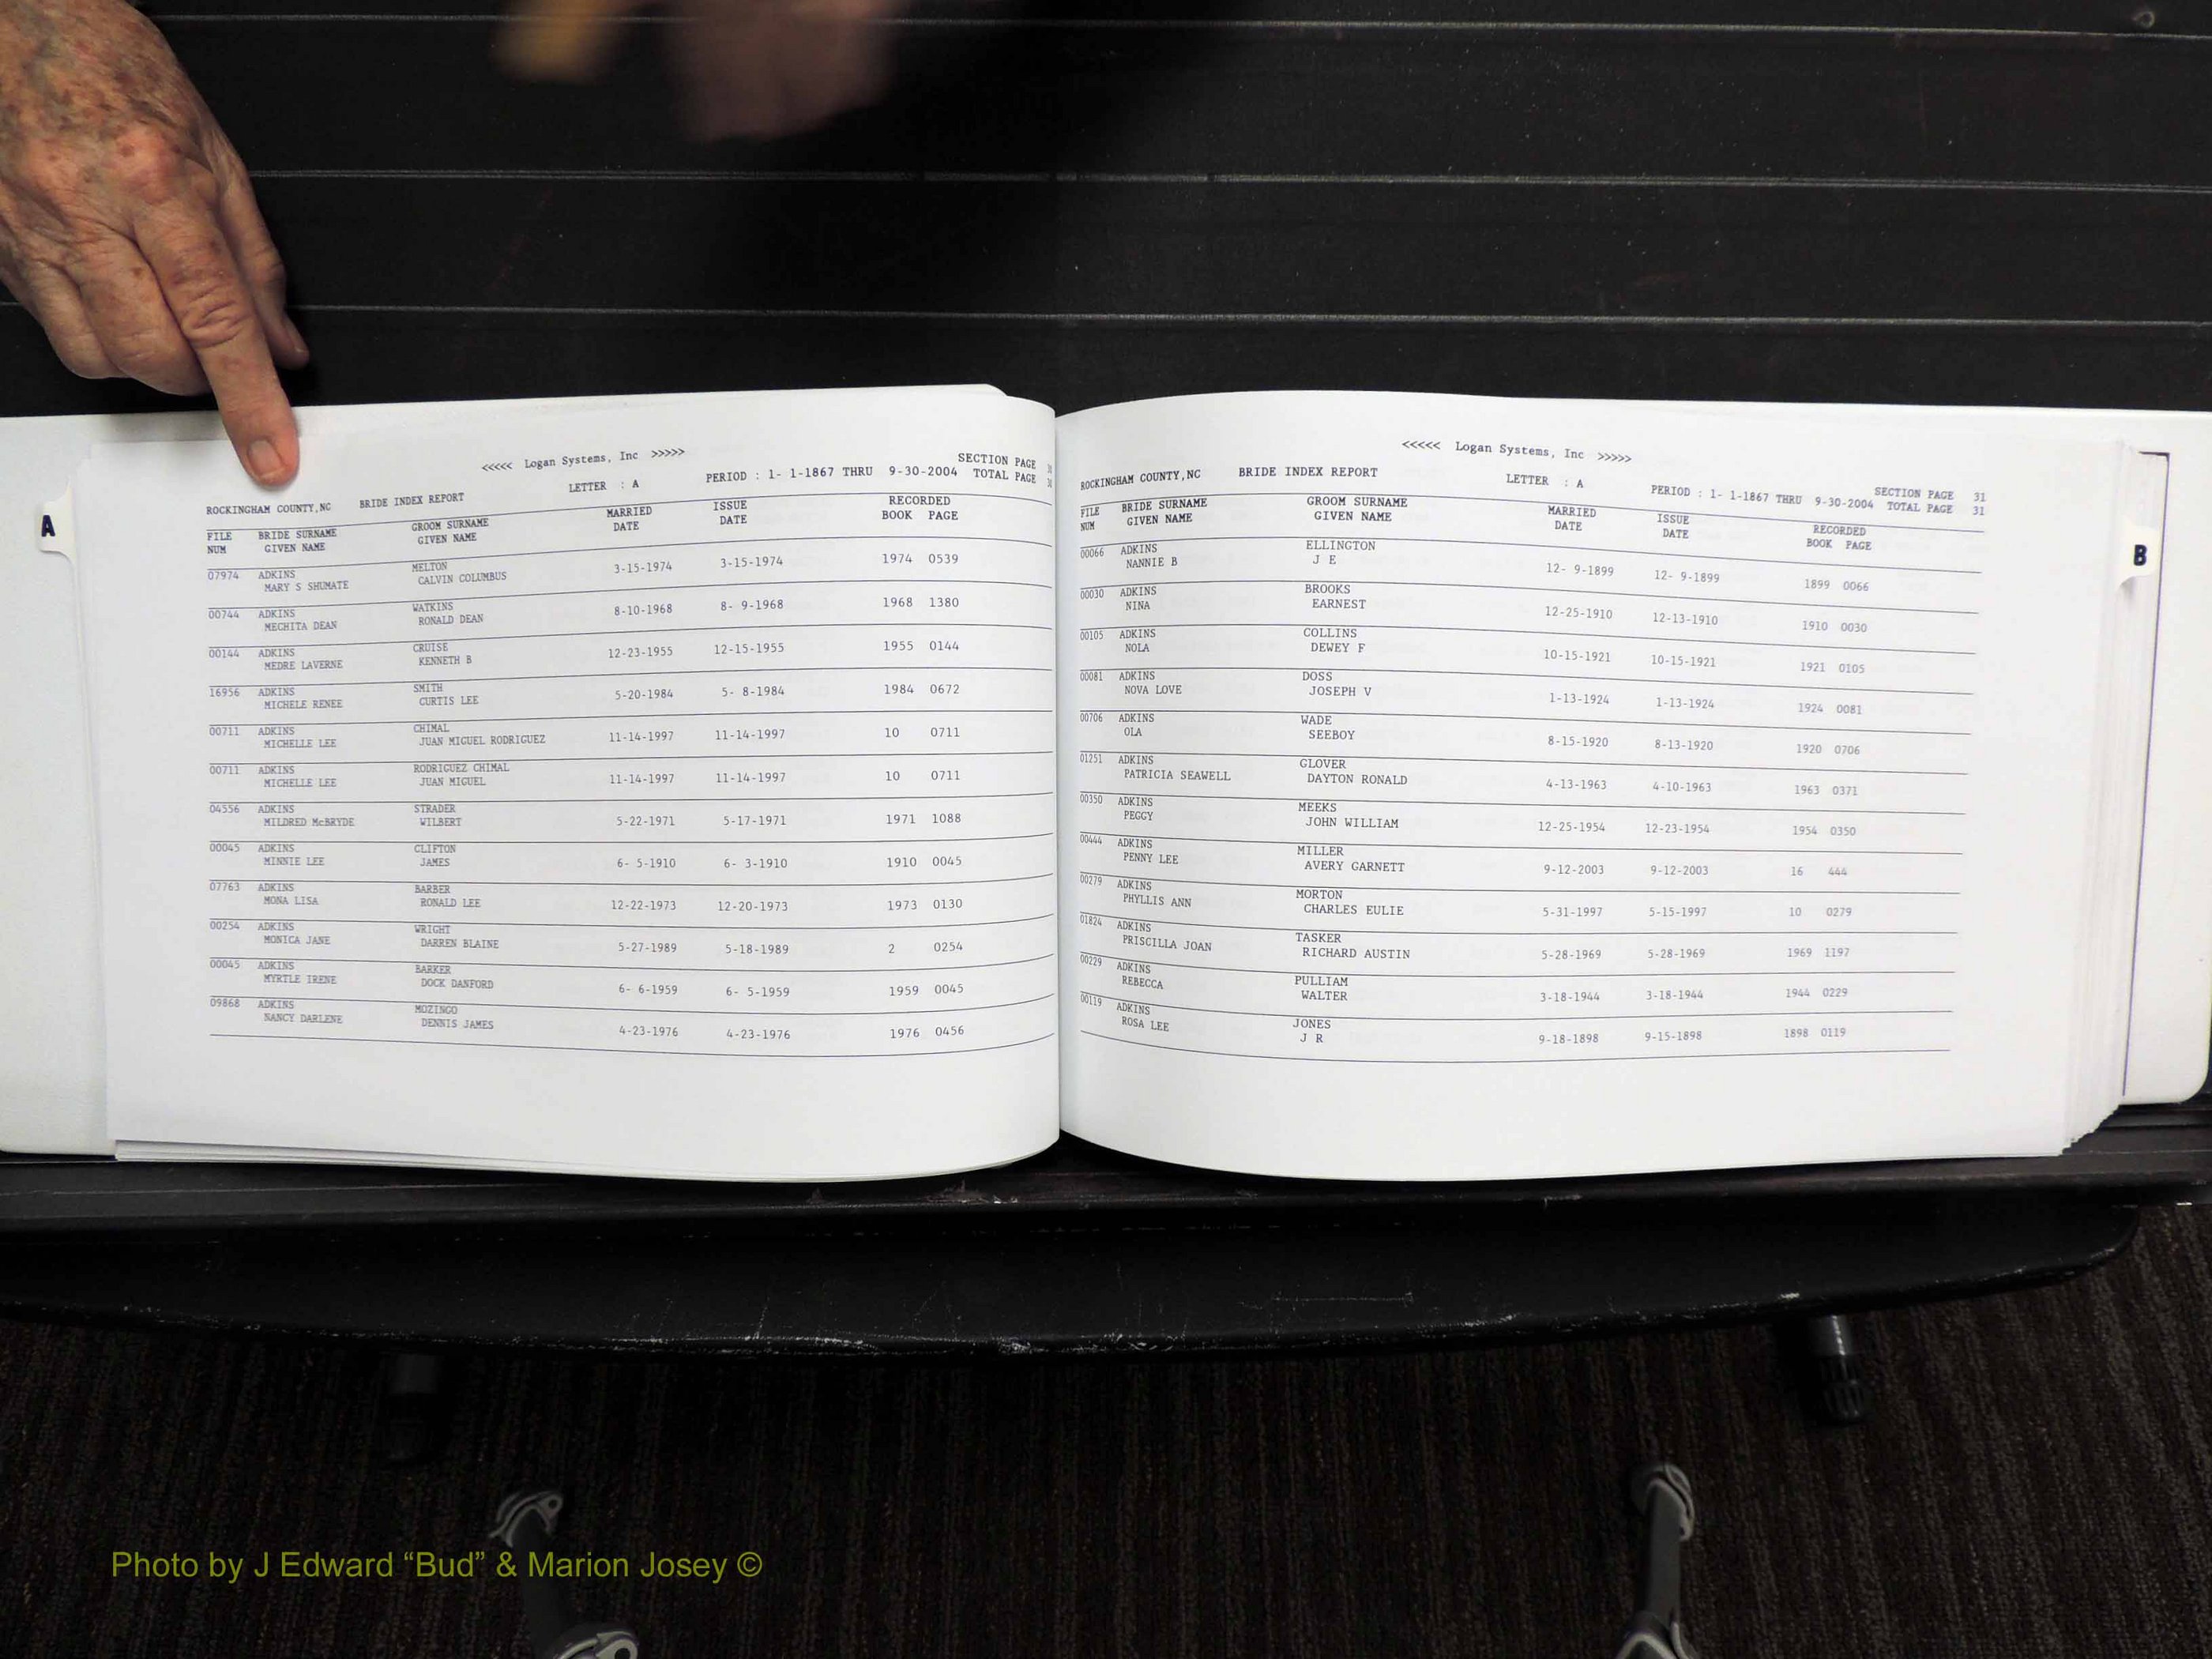 A
<<<<< Logan Systems, Inc >>>>>
ROCKINGHAM COUNTY,NC BRIDE INDEX REPORT LETTER : A PERIOD : 1- 1-1867 THRU 9-30-2004 SECTION PAGE
TOTAL PAGE
FILE BRIDE SURNAME GROOM SURNAME MARRIED ISSUE RECORDED
NUM GIVEN NAME GIVEN NAME DATE DATE BOOK PAGE
07974 ADKINS MELTON 3-15-1974 3-15-1974 1974 0539
MARY S SHUMATE CALVIN COLUMBUS
00744 ADKINS WATKINS 8-10-1968 8- 9-1968 1968 1380
MECHITA DEAN RONALD DEAN
00144 ADKINS CRUISE 12-23-1955 12-15-1955 1955 0144
MEDRE LAVERNE KENNETH B
16956 ADKINS SMITH 5-20-1984 5- 8-1984 1984 0672
MICHELE RENEE CURTIS LEE
00711 ADKINS CHIMAL 11-14-1997 11-14-1997 10 0711
MICHELLE LEE JUAN MIGUEL RODRIGUEZ
00711 ADKINS RODRIGUEZ CHIMAL 11-14-1997 11-14-1997 10 0711
MICHELLE LEE JUAN MIGUEL
04556 ADKINS STRADER 5-22-1971 5-17-1971 1971 1088
MILDRED McBRYDE WILBERT
00045 ADKINS CLIFTON 6- 5-1910 6- 3-1910 1910 0045
MINNIE LEE JAMES
07763 ADKINS BARBER 12-22-1973 12-20-1973 1973 0130
MONA LISA RONALD LEE
00254 ADKINS WRIGHT 5-27-1989 5-18-1989 2 0254
MONICA JANE DARREN BLAINE
00045 ADKINS BARKER 6- 6-1959 6- 5-1959 1959 0045
MYRTLE IRENE DOCK DANFORD
09868 ADKINS MOZINGO 4-23-1976 4-23-1976 1976 0456
NANCY DARLENE DENNIS JAMES
<<<<< Logan Systems, Inc >>>>>
ROCKINGHAM COUNTY,NC BRIDE INDEX REPORT LETTER : A PERIOD : 1- 1-1867 THRU 9-30-2004 SECTION PAGE 31
TOTAL PAGE 31
FILE BRIDE SURNAME GROOM SURNAME MARRIED ISSUE RECORDED
NUM GIVEN NAME GIVEN NAME DATE DATE BOOK PAGE
00066 ADKINS ELLINGTON 12- 9-1899 12- 9-1899 1899 0066
NANNIE B J E
00030 ADKINS BROOKS 12-25-1910 12-13-1910 1910 0030
NINA EARNEST
00105 ADKINS COLLINS 10-15-1921 10-15-1921 1921 0105
NOLA DEWEY F
00081 ADKINS DOSS 1-13-1924 1-13-1924 1924 0081
NOVA LOVE JOSEPH V
00706 ADKINS WADE 8-15-1920 8-13-1920 1920 0706
OLA SEEBOY
01251 ADKINS GLOVER 4-13-1963 4-10-1963 1963 0371
PATRICIA SEAWELL DAYTON RONALD
00350 ADKINS MEEKS 12-25-1954 12-23-1954 1954 0350
PEGGY JOHN WILLIAM
00444 ADKINS MILLER 9-12-2003 9-12-2003 16 444
PENNY LEE AVERY GARNETT
00279 ADKINS MORTON 5-31-1997 5-15-1997 10 0279
PHYLLIS ANN CHARLES EULIE
01824 ADKINS TASKER 5-28-1969 5-28-1969 1969 1197
PRISCILLA JOAN RICHARD AUSTIN
00229 ADKINS PULLIAM 3-18-1944 3-18-1944 1944 0229
REBECCA WALTER
00119 ADKINS JONES 9-18-1898 9-15-1898 1898 0119
ROSA LEE J R
B
Photo by J Edward “Bud” & Marion Josey ©